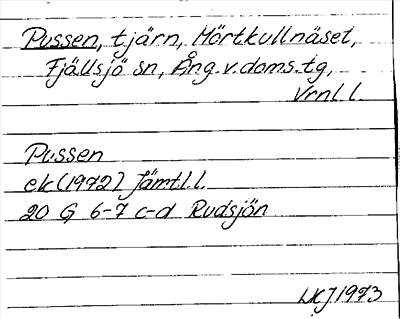 Pussen, tjärn, Mörtkullnäset,
Fjällsjö sn, Ång.v.doms.tg,
Vrnl.l.
Pussen
ek (1972) Jämtl.l.
20 G 6-7 c-d Rudsjön
LKJ 1973